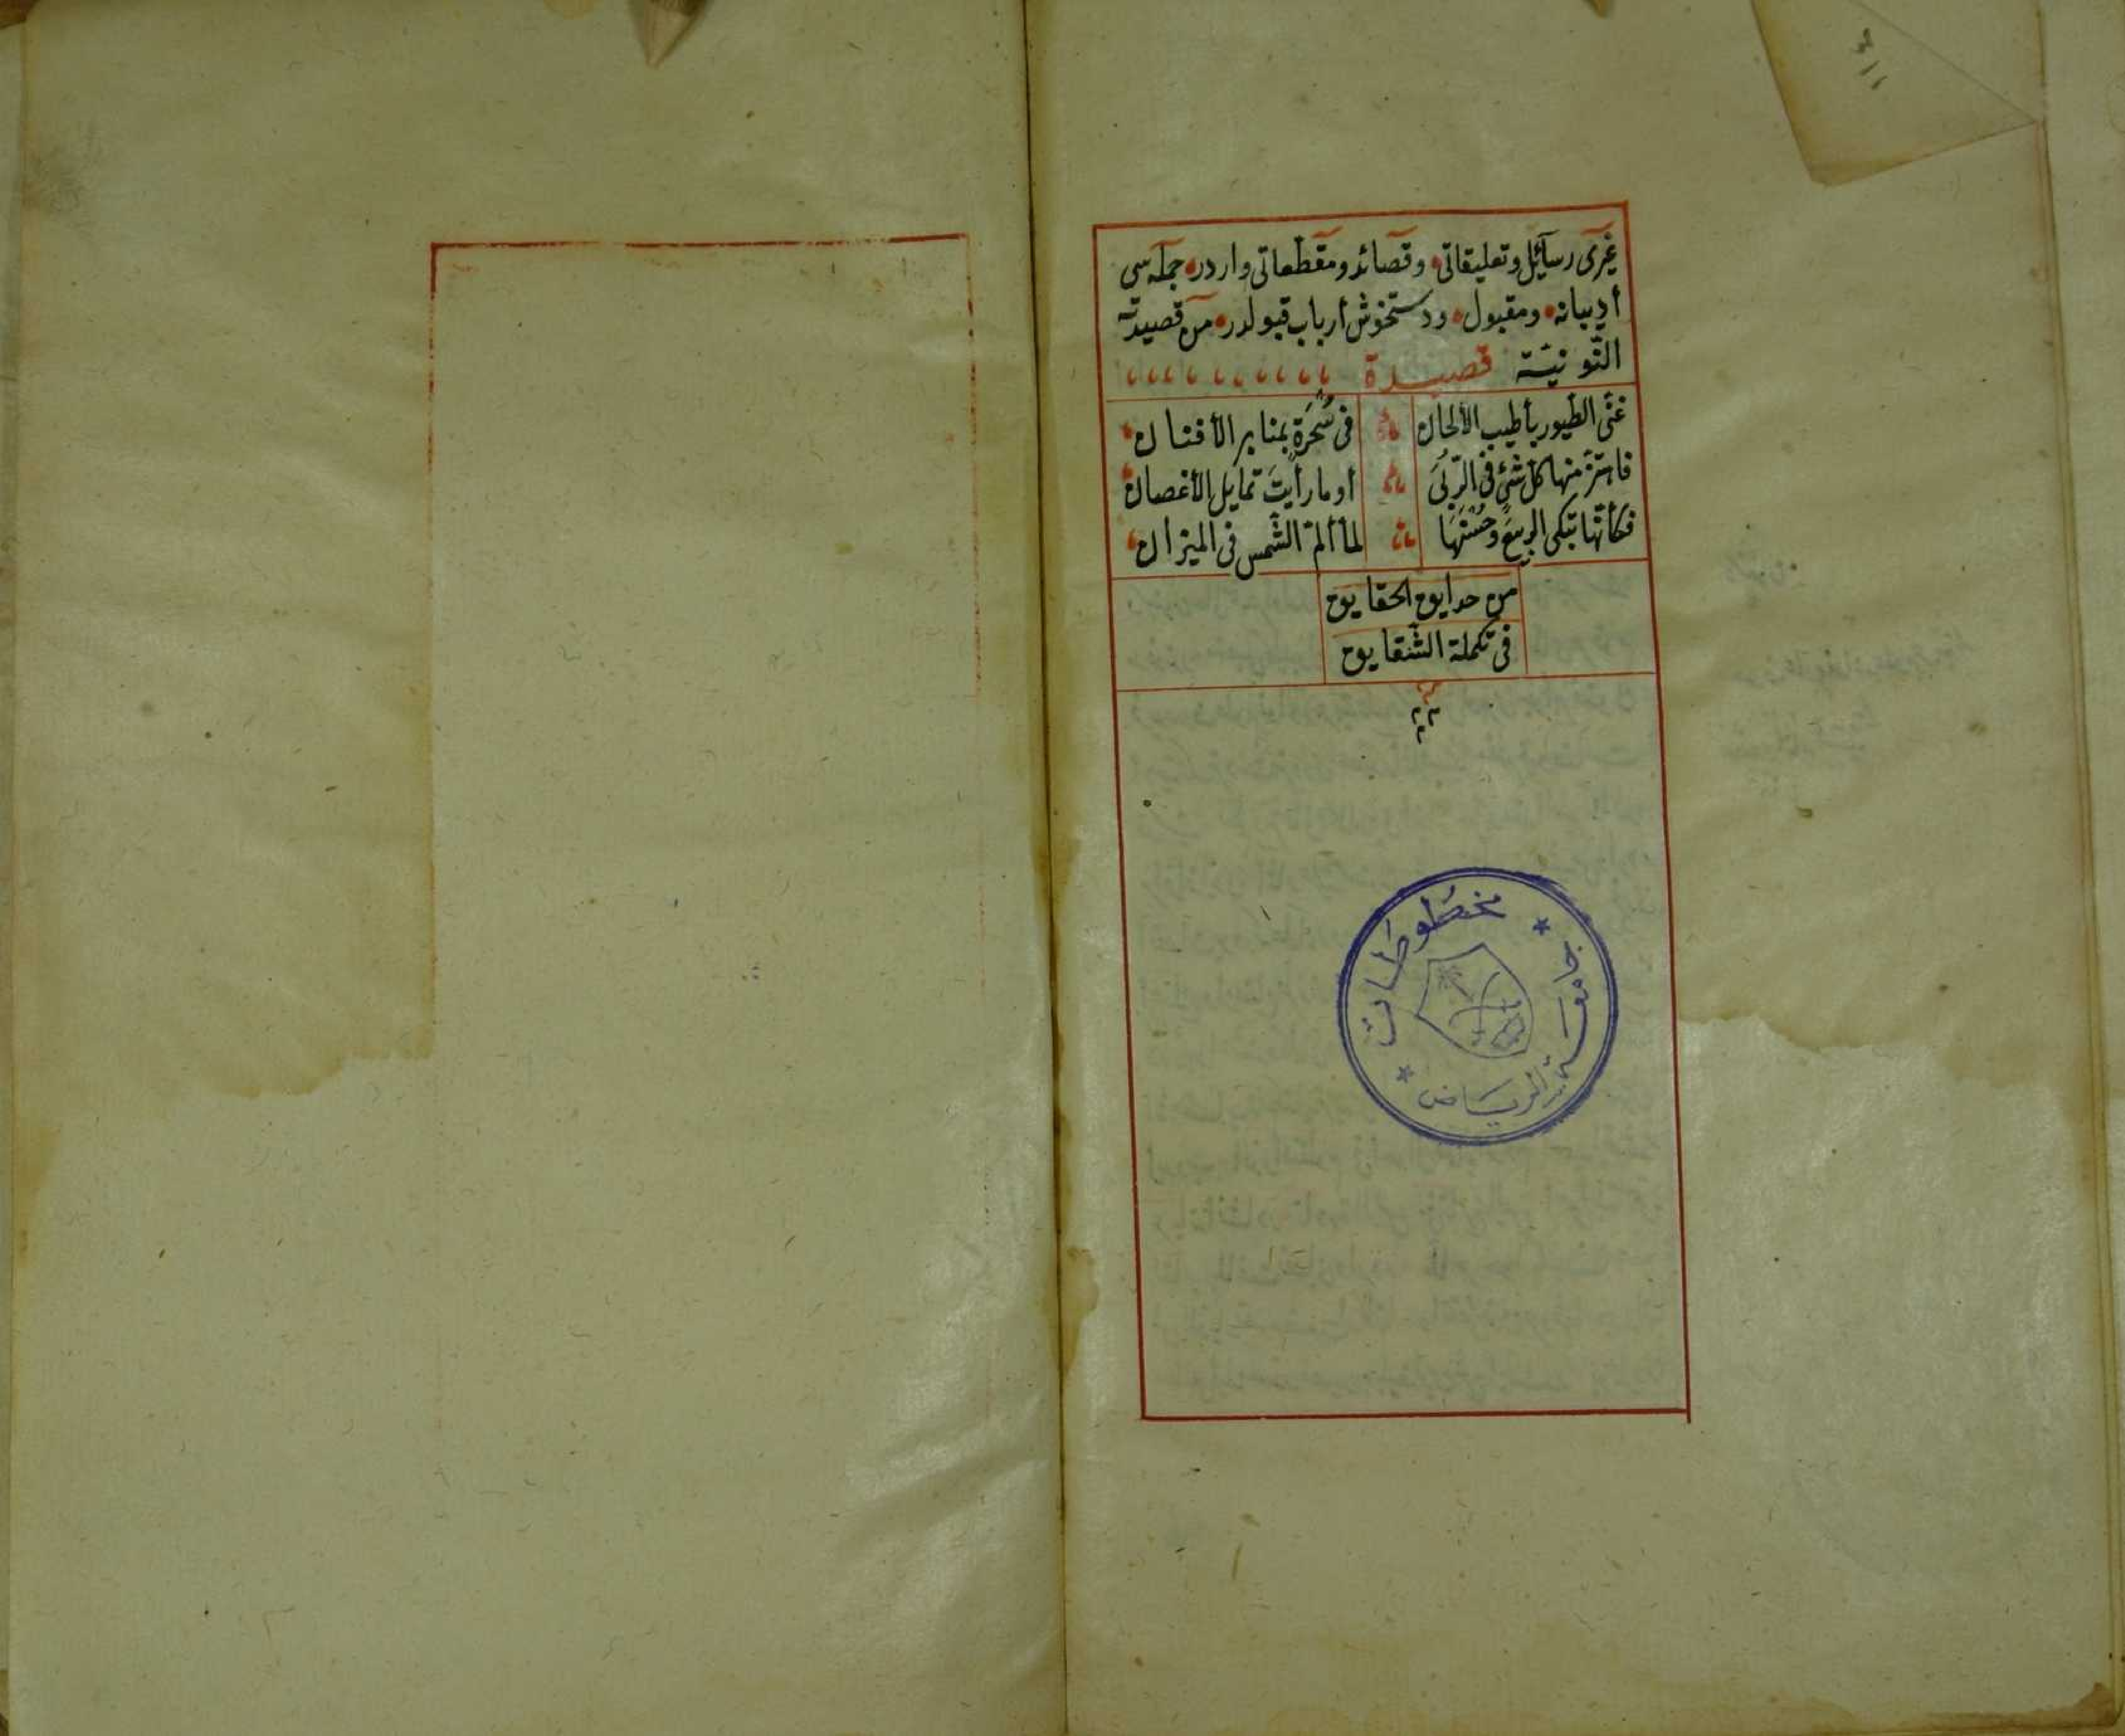 غیری رسآئل وتعلیقاتی، وقصائد ومقطعاتی واردر، جمله سی
أدیبانه، ومقبول، ودستخوش أرباب قبولدر، من قصیدته
النّونیّة قصیدة
غنّی الطّیور بأطیب الألحان فی سُحْرَةٍ بمنابر الأفنان
فاهتزّ منها کل شیٔ فی الرّبی أو ما رأیتَ تمایل الأغصان
فکأنّها تبکی الربیعَ وحُسْنَهَا لما ألمّ الشّمس فی المیزان
من حدایق الحقایق
فی تکملة الشّقایق
مخطوطات
جامعة الریاض